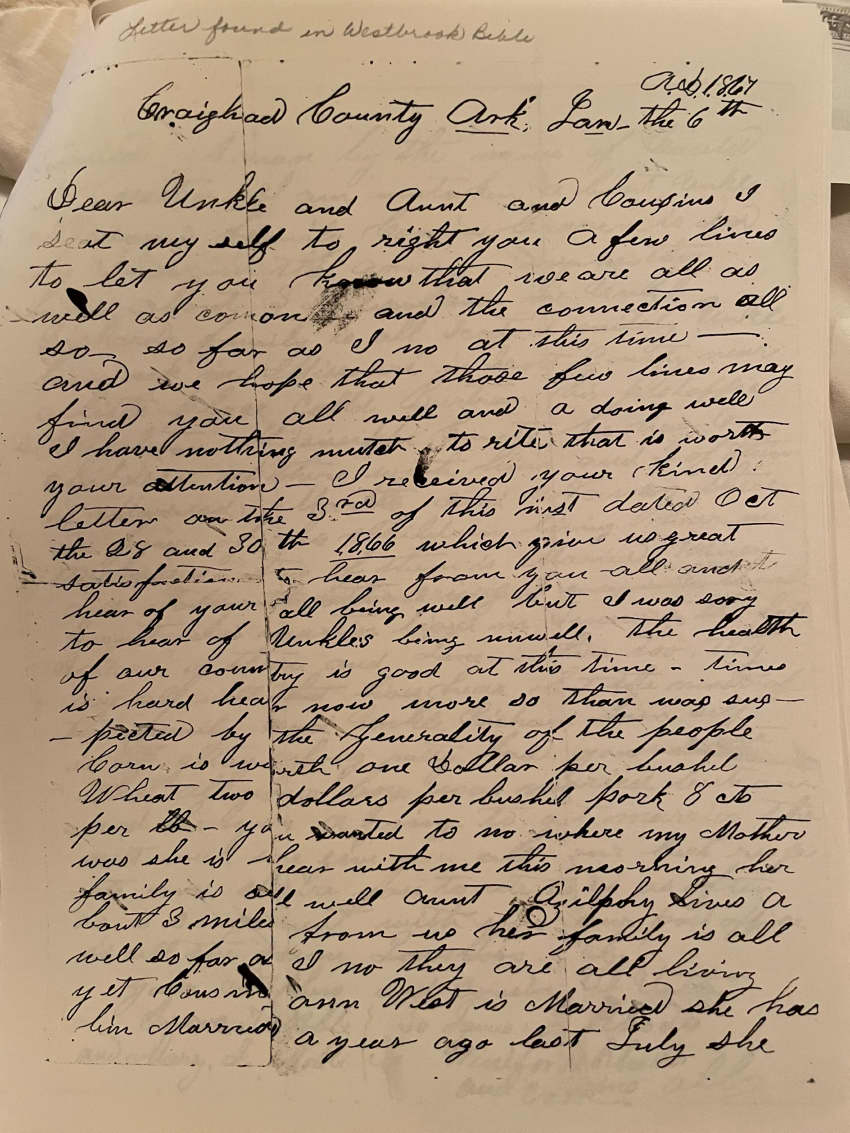 Letter found in Westbrook Bible
AD 1867
Craighad County Ark, Jan - the 6th
Dear Unkle and Aunt and Cousins I
seat my self to right you a few lines
to let you know that we are all as
well as comon and the connection all
so - so far as I no at this time -
and we hope that those few lines may
find you all well and a doing well
I have nothing mutch to rite that is worth
your attention - I received your kind
letter on the 3rd of this inst dated Oct
the 28 and 30th 1866 which give us great
satisfaction to hear from you all and to
hear of your all being well but I was sory
to hear of Unkles being unwell. The health
of our country is good at this time - times
is hard hear now more so than was sus-
-pected by the Generality of the people
Corn is worth one Dollar per bushel
Wheat two dollars per bushel pork 8 cts
per lb - you wanted to no where my Mother
was she is hear with me this morning her
family is all well aunt lives a
bout 3 miles from us her family is all
well so far as I no they are all living
yet Cousin ann West is Married she has
bin Married a year ago last July she